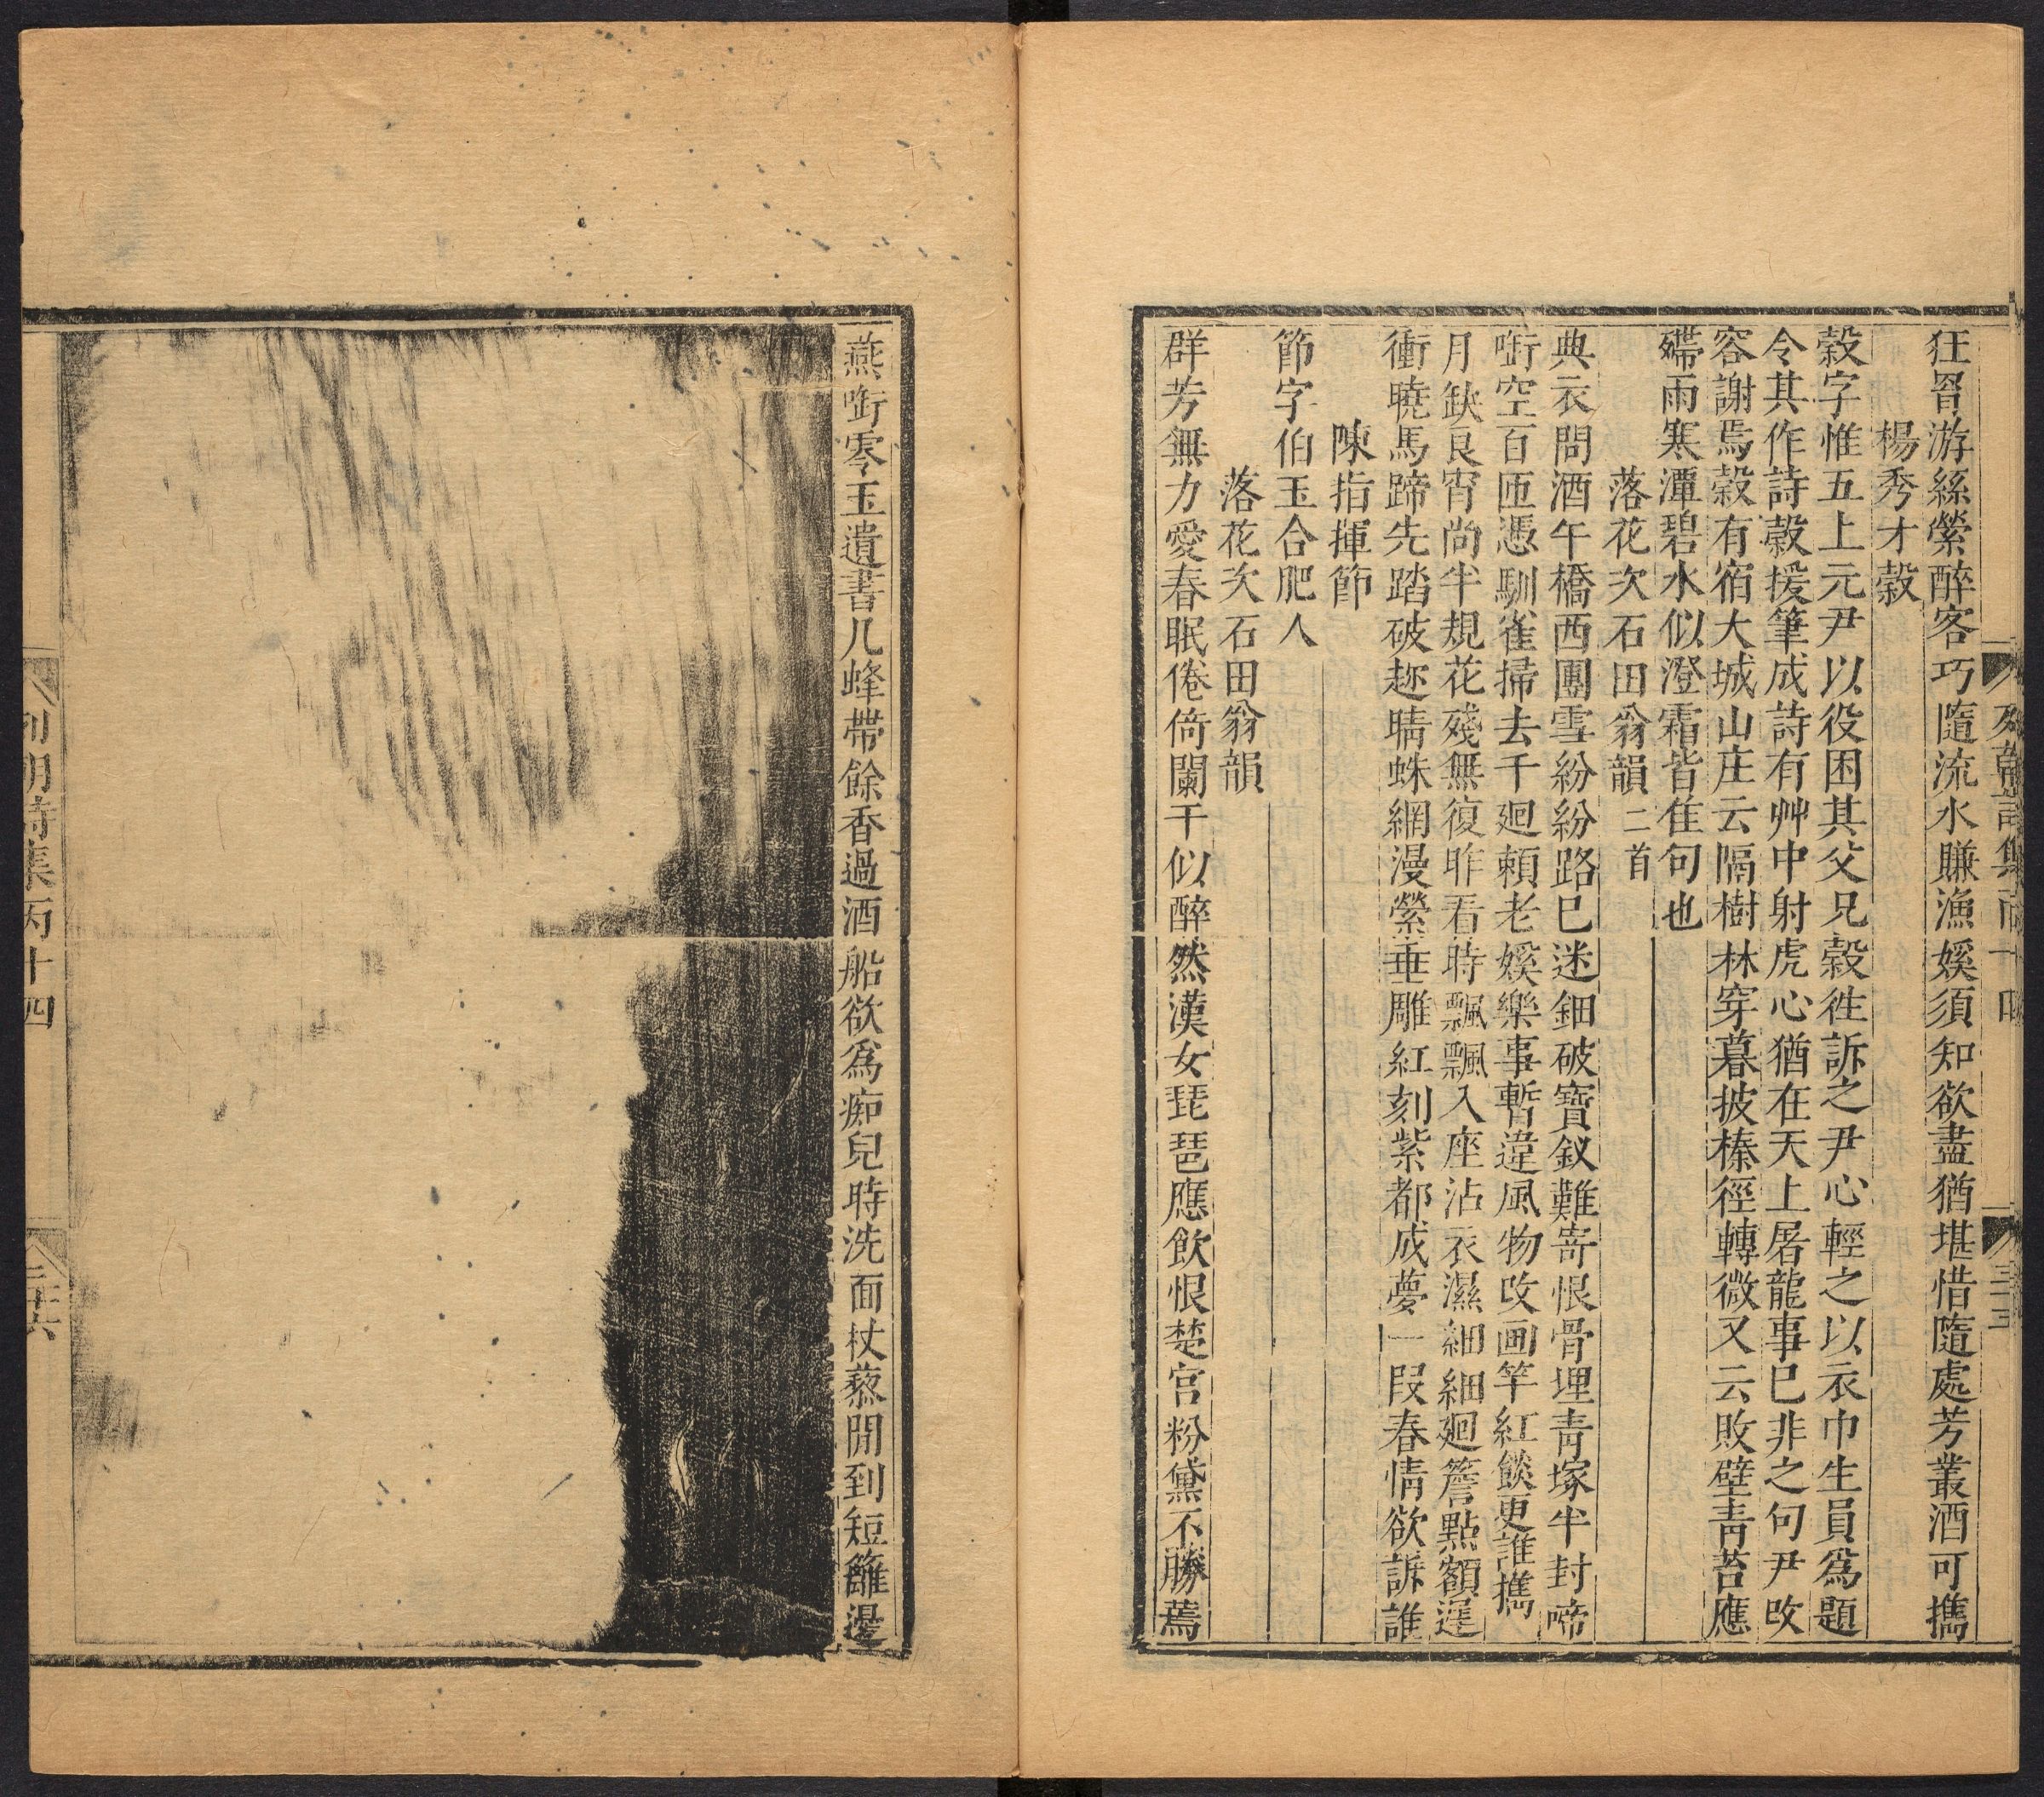 狂罥游絲縈醉客巧隨流水賺漁媭須知欲盡猶堪惜隨處芳叢酒可攜
楊秀才穀
穀字惟五上元尹以役困其父兄穀徃訴之尹心輕之以衣巾生員爲題
令其作詩穀援筆成詩有艸中射虎心猶在天上屠龍事巳非之句尹改
容謝焉穀有宿大城山庄云隔樹林穿暮披榛徑轉微又云敗壁靑苔應
殢雨寒潭碧水似澄霜皆隹句也
落花次石田翁韻二首
典衣問酒午橋西團雪紛紛路巳迷鈿破寶釵難寄恨骨埋靑塚半封啼
啣空百匝憑馴雀掃去千廻頼老媭樂事暫違風物改画竿紅餤更誰攜
月缺良宵尚半規花殘無復昨看時飄飄入座沾衣濕細細廻簷點額遲
衝曉馬蹄先踏破趂晴蛛網漫縈垂雕紅刻紫都成夢一段春情欲訴誰
陳指揮節
節字伯玉合肥人
落花次石田翁韻
群芳無力愛春眠倦倚闌干似醉然漢女琵琶應飲恨楚宮粉黛不勝蔫
燕啣零玉遺書几蜂帶餘香過酒船欲爲痴兒時洗面杖藜閒到短籬邊
列朝詩集丙十四
三十五
列朝詩集丙十四
三十六